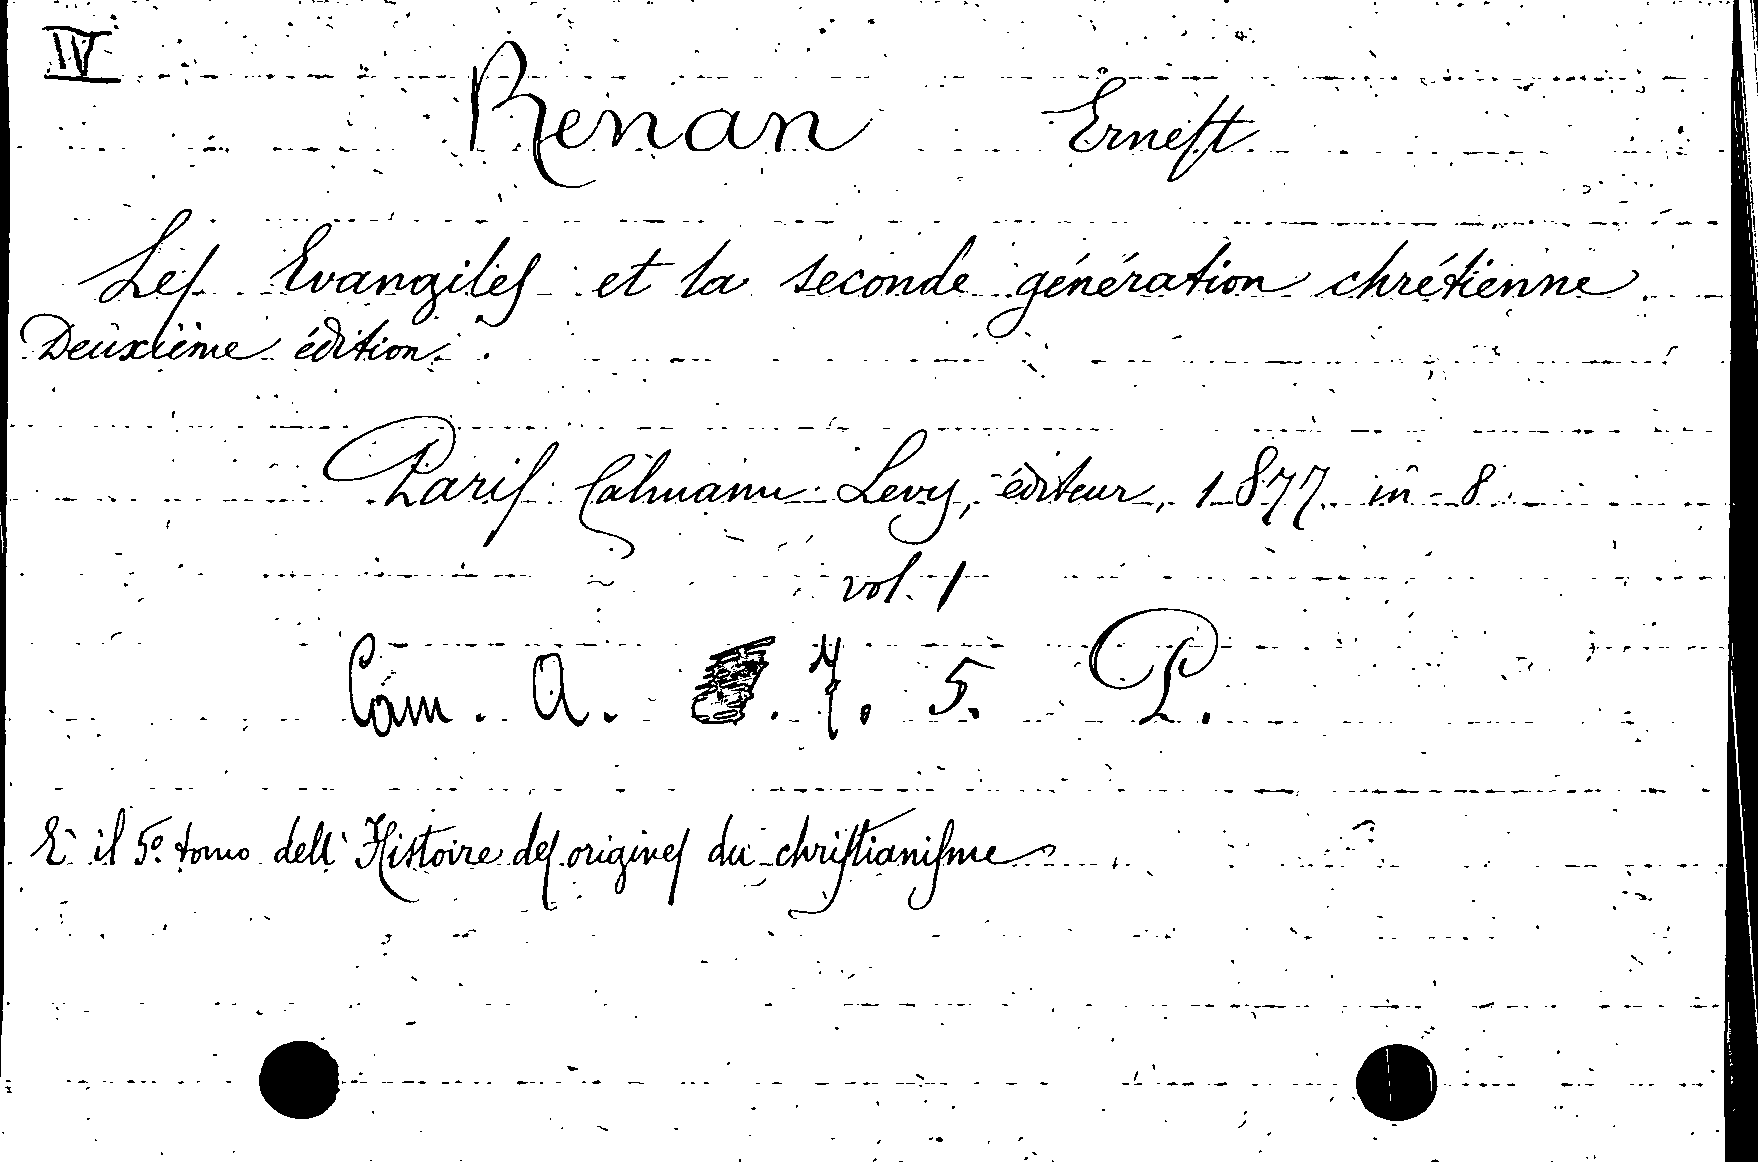 IV
Renan Ernest
Les Evangiles et la seconde génération chrétienne
Deuxième édition.
Paris Calmann Levy, éditeur, 1877 in-8
vol. 1
Cam. A. . 7. 5. P.
È il 5º tomo dell'Histoire des origines du christianisme